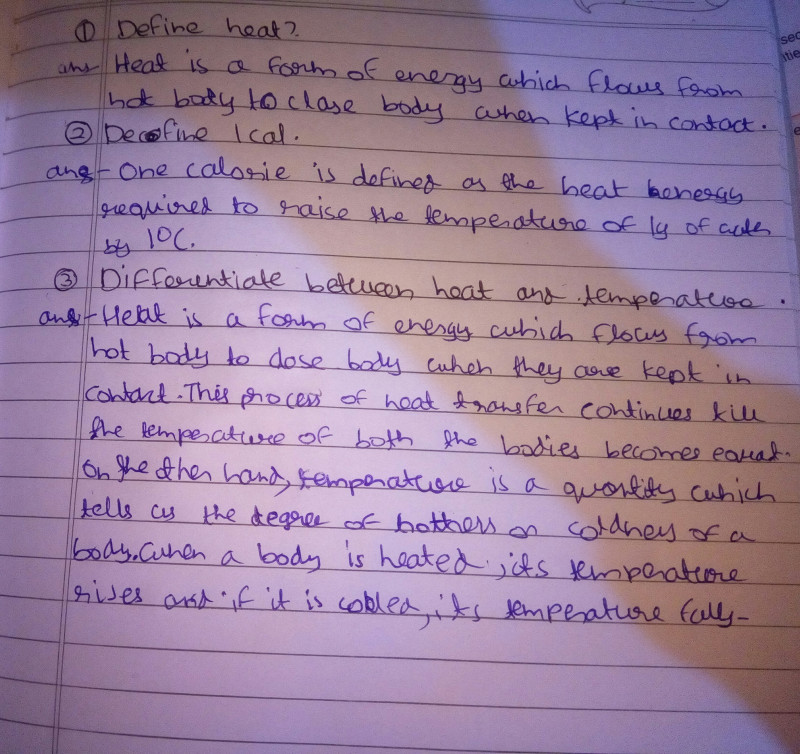 ① Define heat?
ans Heat is a form of energy which flows from
hot body to close body when kept in contact.
② Define 1 cal.
ans- One calorie is defined as the heat energy
required to raise the temperature of 1g of water
by 1°C.
③ Differentiate between heat and temperature.
ans- Heat is a form of energy which flows from
hot body to close body when they are kept in
contact. This process of heat transfer continues till
the temperature of both the bodies becomes equal.
On the other hand, temperature is a quantity which
tells us the degree of hotness or coldness of a
body. When a body is heated, its temperature
rises and if it is cooled, its temperature falls-